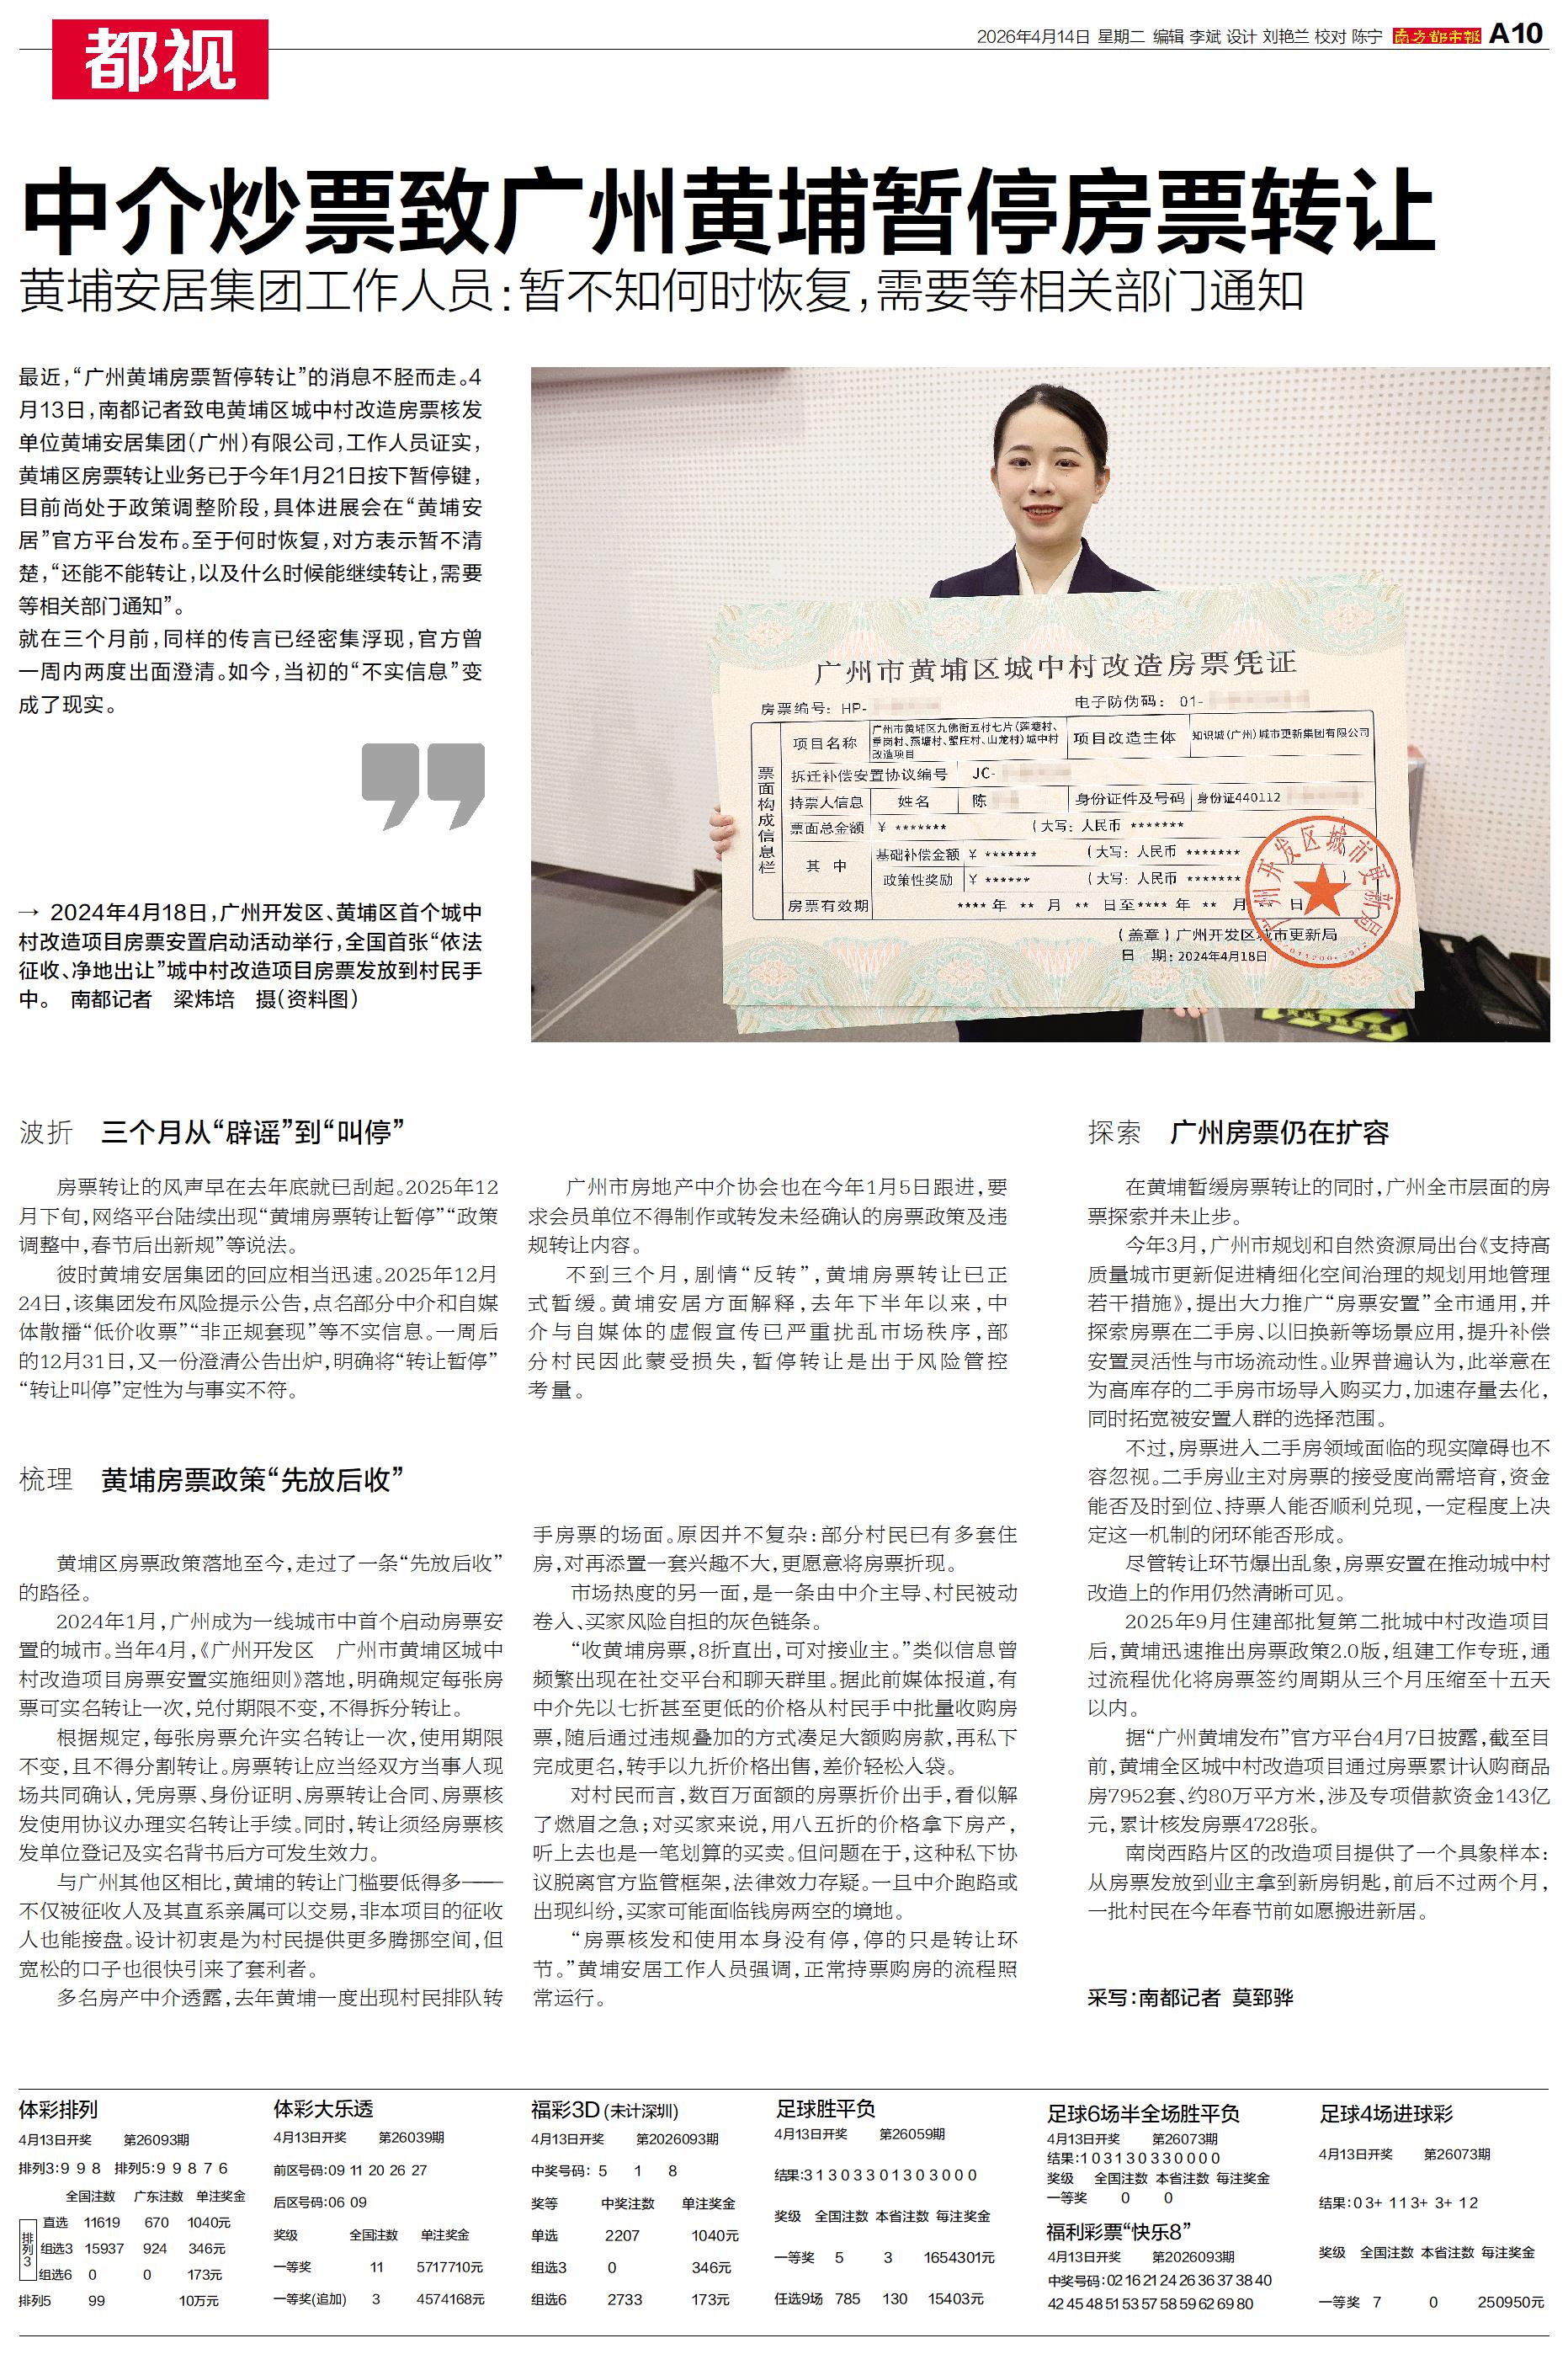 都视
2026年4月14日 星期二 编辑 李斌 设计 刘艳兰 校对 陈宁 南方都市报 A10
中介炒票致广州黄埔暂停房票转让
黄埔安居集团工作人员:暂不知何时恢复,需要等相关部门通知
最近,“广州黄埔房票暂停转让”的消息不胫而走。4
月13日,南都记者致电黄埔区城中村改造房票核发
单位黄埔安居集团(广州)有限公司,工作人员证实,
黄埔区房票转让业务已于今年1月21日按下暂停键,
目前尚处于政策调整阶段,具体进展会在“黄埔安
居”官方平台发布。至于何时恢复,对方表示暂不清
楚,“还能不能转让,以及什么时候能继续转让,需要
等相关部门通知”。
就在三个月前,同样的传言已经密集浮现,官方曾
一周内两度出面澄清。如今,当初的“不实信息”变
成了现实。
→ 2024年4月18日,广州开发区、黄埔区首个城中
村改造项目房票安置启动活动举行,全国首张“依法
征收、净地出让”城中村改造项目房票发放到村民手
中。 南都记者 梁炜培 摄(资料图)
广州市黄埔区城中村改造房票凭证
房票编号: HP-
电子防伪码: 01-
票面构成信息栏
项目名称
广州市黄埔区九佛街五村七片(莲塘村、
重岗村、燕塘村、蟹庄村、山龙村)城中村
改造项目
项目改造主体
知识城(广州)城市更新集团有限公司
拆迁补偿安置协议编号 JC-
持票人信息 姓名 陈 身份证件及号码 身份证440112
票面总金额 ¥ ******* (大写: 人民币 *******
其 中
基础补偿金额 ¥ ******* (大写: 人民币 ******* )
政策性奖励 ¥ ****** (大写: 人民币 ******* )
房票有效期 **** 年 ** 月 ** 日至 **** 年 ** 月 ** 日
(盖章)广州开发区城市更新局
日 期: 2024年4月18日
广州开发区城市更新局
波折 三个月从“辟谣”到“叫停”
房票转让的风声早在去年底就已刮起。2025年12
月下旬,网络平台陆续出现“黄埔房票转让暂停”“政策
调整中,春节后出新规”等说法。
彼时黄埔安居集团的回应相当迅速。2025年12月
24日,该集团发布风险提示公告,点名部分中介和自媒
体散播“低价收票”“非正规套现”等不实信息。一周后
的12月31日,又一份澄清公告出炉,明确将“转让暂停”
“转让叫停”定性为与事实不符。
广州市房地产中介协会也在今年1月5日跟进,要
求会员单位不得制作或转发未经确认的房票政策及违
规转让内容。
不到三个月,剧情“反转”,黄埔房票转让已正
式暂缓。黄埔安居方面解释,去年下半年以来,中
介与自媒体的虚假宣传已严重扰乱市场秩序,部
分村民因此蒙受损失,暂停转让是出于风险管控
考量。
梳理 黄埔房票政策“先放后收”
黄埔区房票政策落地至今,走过了一条“先放后收”
的路径。
2024年1月,广州成为一线城市中首个启动房票安
置的城市。当年4月,《广州开发区 广州市黄埔区城中
村改造项目房票安置实施细则》落地,明确规定每张房
票可实名转让一次,兑付期限不变,不得拆分转让。
根据规定,每张房票允许实名转让一次,使用期限
不变,且不得分割转让。房票转让应当经双方当事人现
场共同确认,凭房票、身份证明、房票转让合同、房票核
发使用协议办理实名转让手续。同时,转让须经房票核
发单位登记及实名背书后方可发生效力。
与广州其他区相比,黄埔的转让门槛要低得多——
不仅被征收人及其直系亲属可以交易,非本项目的征收
人也能接盘。设计初衷是为村民提供更多腾挪空间,但
宽松的口子也很快引来了套利者。
多名房产中介透露,去年黄埔一度出现村民排队转
手房票的场面。原因并不复杂:部分村民已有多套住
房,对再添置一套兴趣不大,更愿意将房票折现。
市场热度的另一面,是一条由中介主导、村民被动
卷入、买家风险自担的灰色链条。
“收黄埔房票,8折直出,可对接业主。”类似信息曾
频繁出现在社交平台和聊天群里。据此前媒体报道,有
中介先以七折甚至更低的价格从村民手中批量收购房
票,随后通过违规叠加的方式凑足大额购房款,再私下
完成更名,转手以九折价格出售,差价轻松入袋。
对村民而言,数百万面额的房票折价出手,看似解
了燃眉之急;对买家来说,用八五折的价格拿下房产,
听上去也是一笔划算的买卖。但问题在于,这种私下协
议脱离官方监管框架,法律效力存疑。一旦中介跑路或
出现纠纷,买家可能面临钱房两空的境地。
“房票核发和使用本身没有停,停的只是转让环
节。”黄埔安居工作人员强调,正常持票购房的流程照
常运行。
探索 广州房票仍在扩容
在黄埔暂缓房票转让的同时,广州全市层面的房
票探索并未止步。
今年3月,广州市规划和自然资源局出台《支持高
质量城市更新促进精细化空间治理的规划用地管理
若干措施》,提出大力推广“房票安置”全市通用,并
探索房票在二手房、以旧换新等场景应用,提升补偿
安置灵活性与市场流动性。业界普遍认为,此举意在
为高库存的二手房市场导入购买力,加速存量去化,
同时拓宽被安置人群的选择范围。
不过,房票进入二手房领域面临的现实障碍也不
容忽视。二手房业主对房票的接受度尚需培育,资金
能否及时到位、持票人能否顺利兑现,一定程度上决
定这一机制的闭环能否形成。
尽管转让环节爆出乱象,房票安置在推动城中村
改造上的作用仍然清晰可见。
2025年9月住建部批复第二批城中村改造项目
后,黄埔迅速推出房票政策2.0版,组建工作专班,通
过流程优化将房票签约周期从三个月压缩至十五天
以内。
据“广州黄埔发布”官方平台4月7日披露,截至目
前,黄埔全区城中村改造项目通过房票累计认购商品
房7952套、约80万平方米,涉及专项借款资金143亿
元,累计核发房票4728张。
南岗西路片区的改造项目提供了一个具象样本:
从房票发放到业主拿到新房钥匙,前后不过两个月,
一批村民在今年春节前如愿搬进新居。
采写:南都记者 莫郅骅
体彩排列
4月13日开奖 第26093期
排列3:9 9 8 排列5:9 9 8 7 6
全国注数 广东注数 单注奖金
排列3
直选 11619 670 1040元
组选3 15937 924 346元
组选6 0 0 173元
排列5 99 10万元
体彩大乐透
4月13日开奖 第26039期
前区号码:09 11 20 26 27
后区号码:06 09
奖级 全国注数 单注奖金
一等奖 11 5717710元
一等奖(追加) 3 4574168元
福彩3D(未计深圳)
4月13日开奖 第2026093期
中奖号码: 5 1 8
奖等 中奖注数 单注奖金
单选 2207 1040元
组选3 0 346元
组选6 2733 173元
足球胜平负
4月13日开奖 第26059期
结果:3 1 3 0 3 3 0 1 3 0 3 0 0 0
奖级 全国注数 本省注数 每注奖金
一等奖 5 3 1654301元
任选9场 785 130 15403元
足球6场半全场胜平负
4月13日开奖 第26073期
结果:1 0 3 1 3 0 3 3 0 0 0 0
奖级 全国注数 本省注数 每注奖金
一等奖 0 0
福利彩票“快乐8”
4月13日开奖 第2026093期
中奖号码:02 16 21 24 26 36 37 38 40
42 45 48 51 53 57 58 59 62 69 80
足球4场进球彩
4月13日开奖 第26073期
结果:0 3+ 1 1 3+ 3+ 1 2
奖级 全国注数 本省注数 每注奖金
一等奖 7 0 250950元